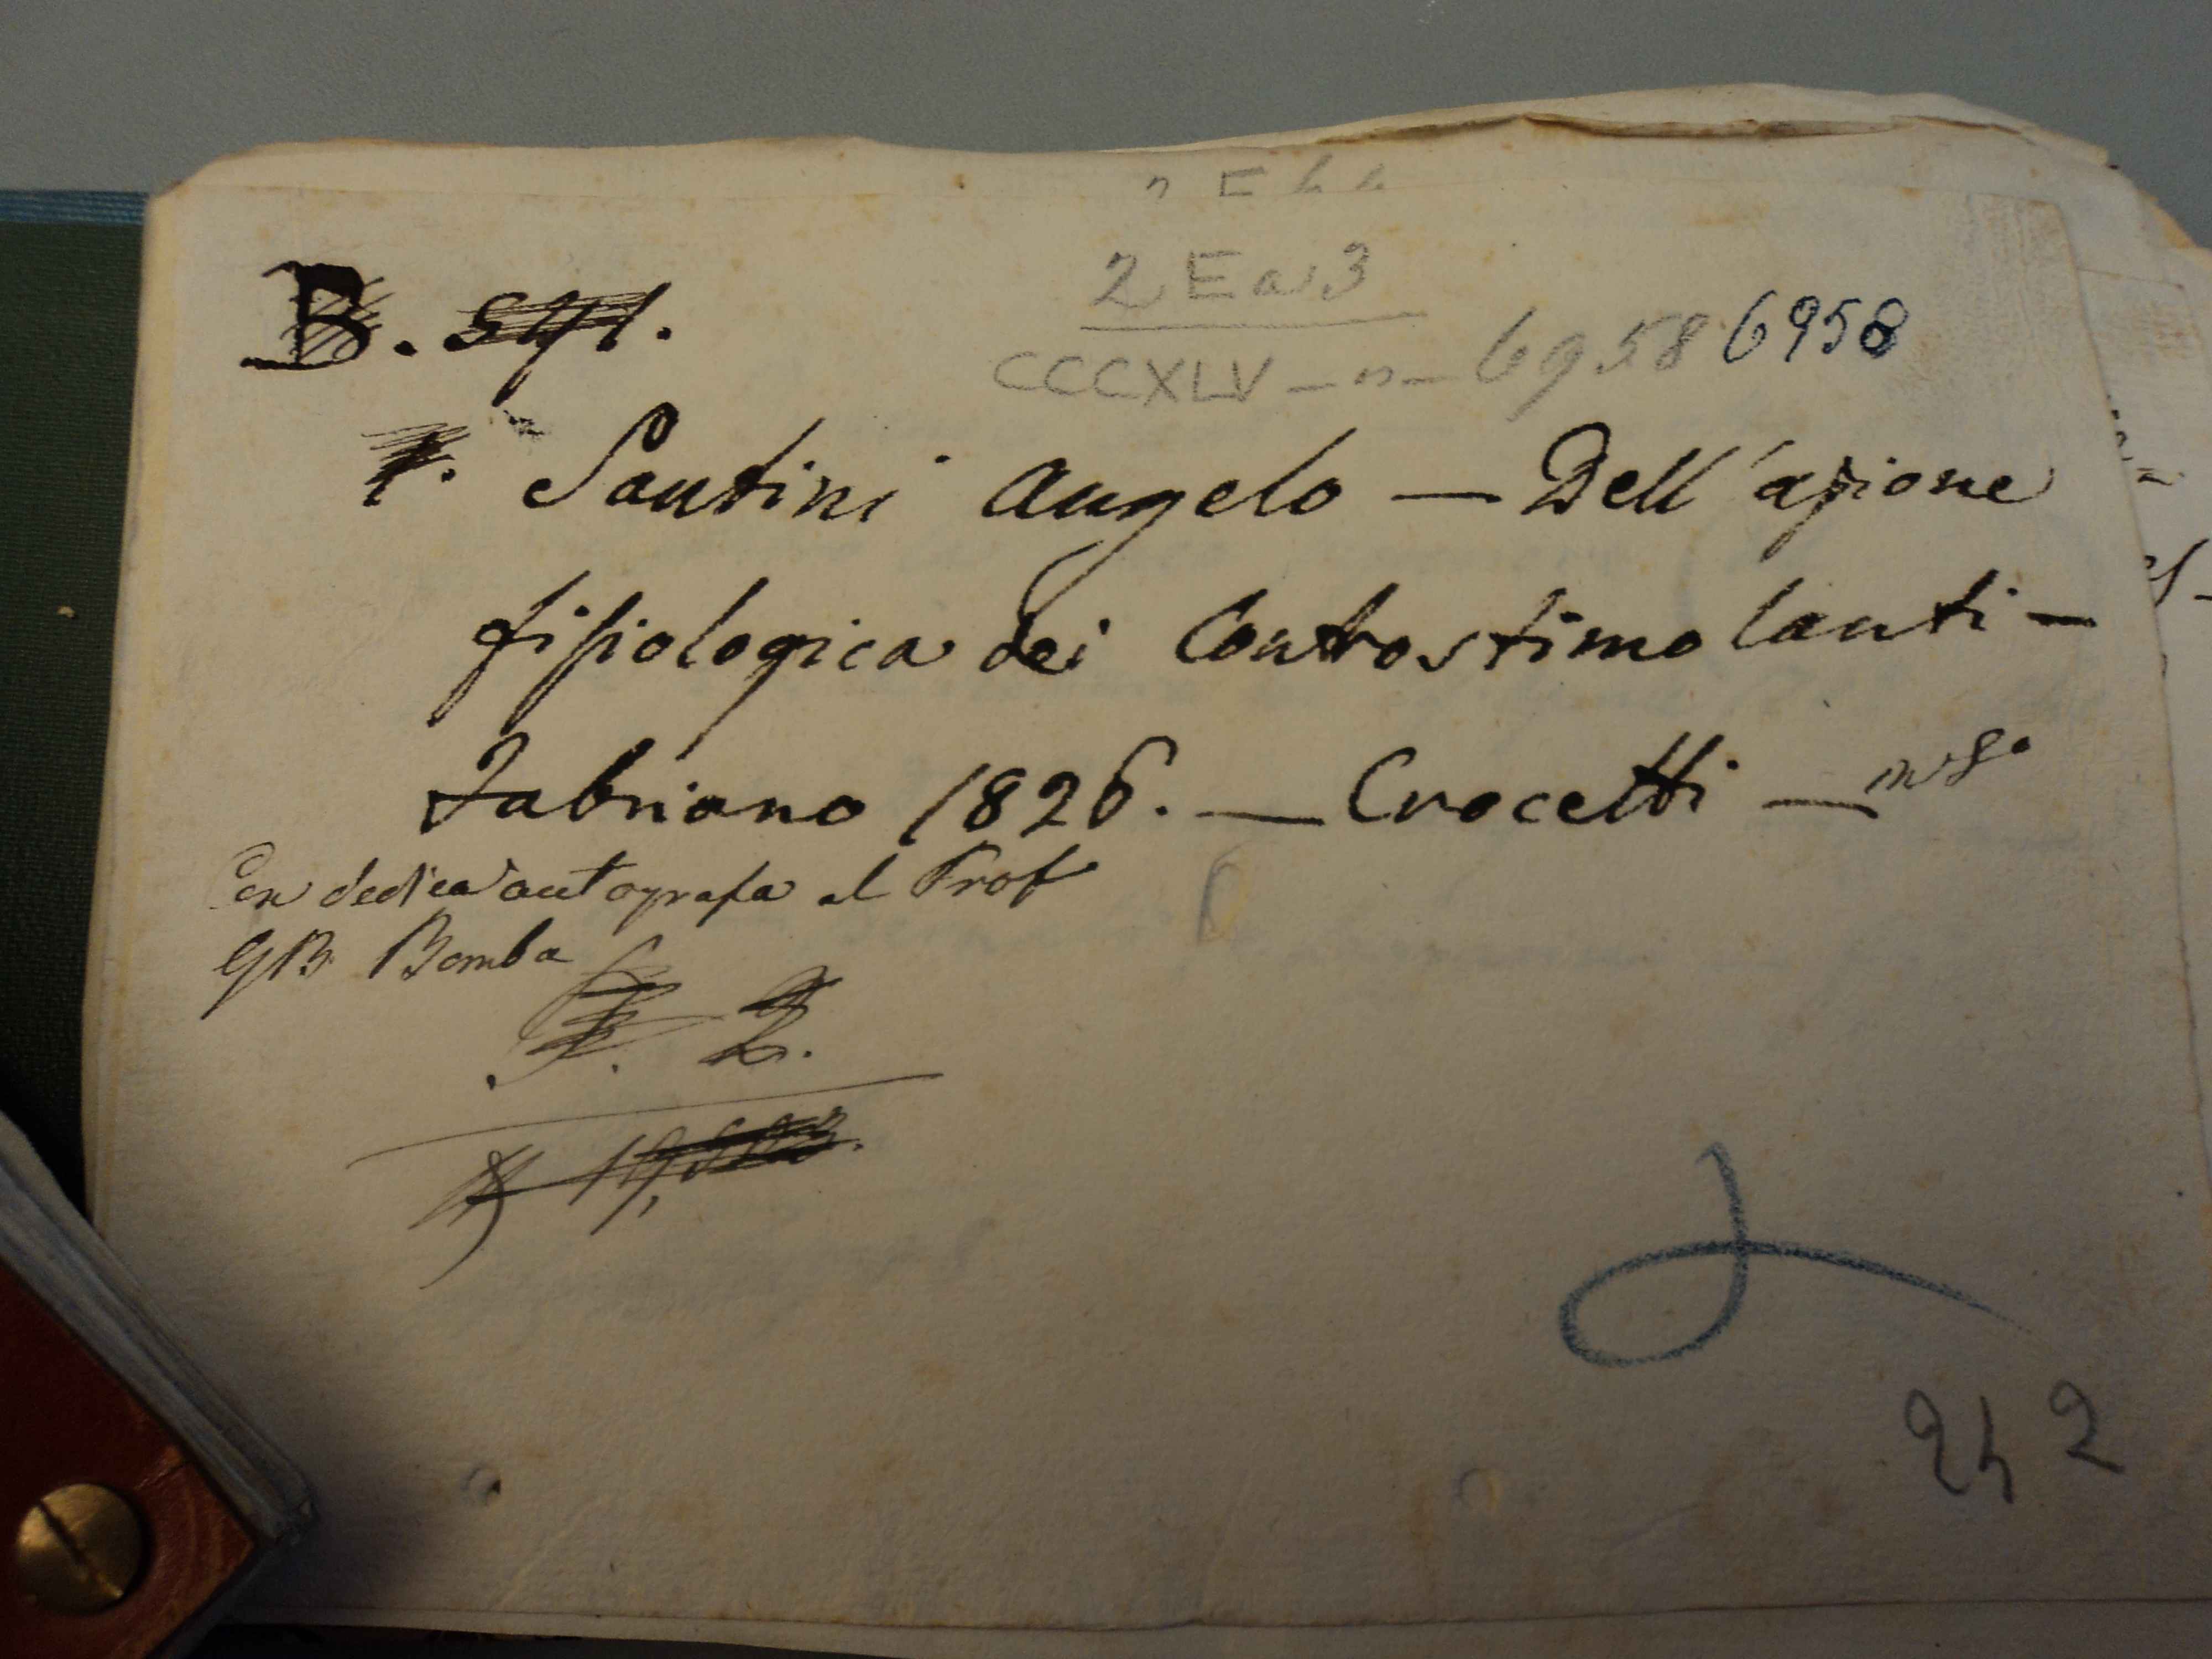 2 Ea 3
B.
CCCXLV - n - 6958 6958
1. Santini Angelo — Dell'azione
fisiologica dei Controstimolanti —
Fabriano 1826. — Crocetti — in 8°
Con dedica autografa al Prof
GB. Bomba
242